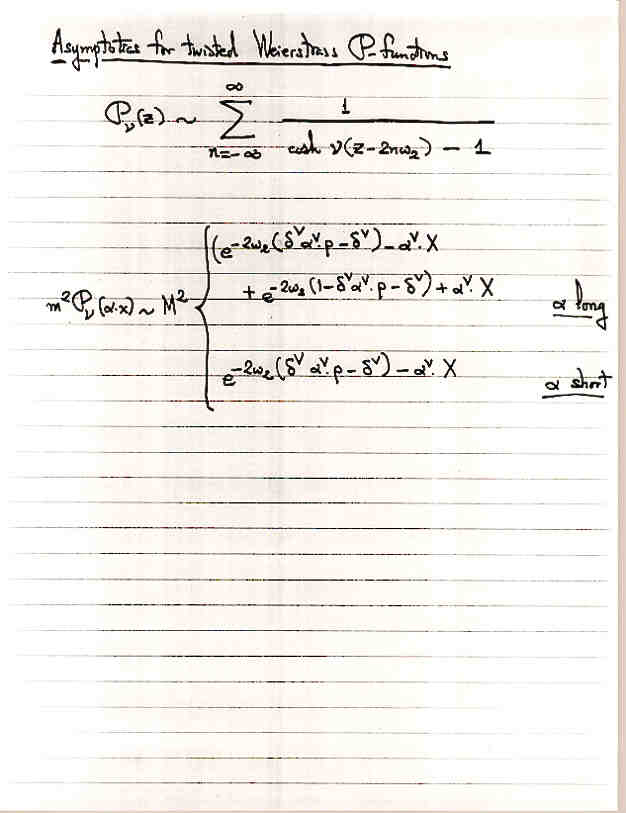 Asymptotics for twisted Weierstrass ℘-functions
℘_ν(z) ~ ∑_{n=-∞}^{∞} 1 / (cosh ν(z-2nω₂) - 1)
m²℘_ν(α·x) ~ M² { (e^{-2ω₂(δ^∨ α^∨·ρ - δ^∨) - α^∨·X}
+ e^{-2ω₂(1-δ^∨ α^∨·ρ - δ^∨) + α^∨·X} α long
e^{-2ω₂(δ^∨ α^∨·ρ - δ^∨) - α^∨·X} α short